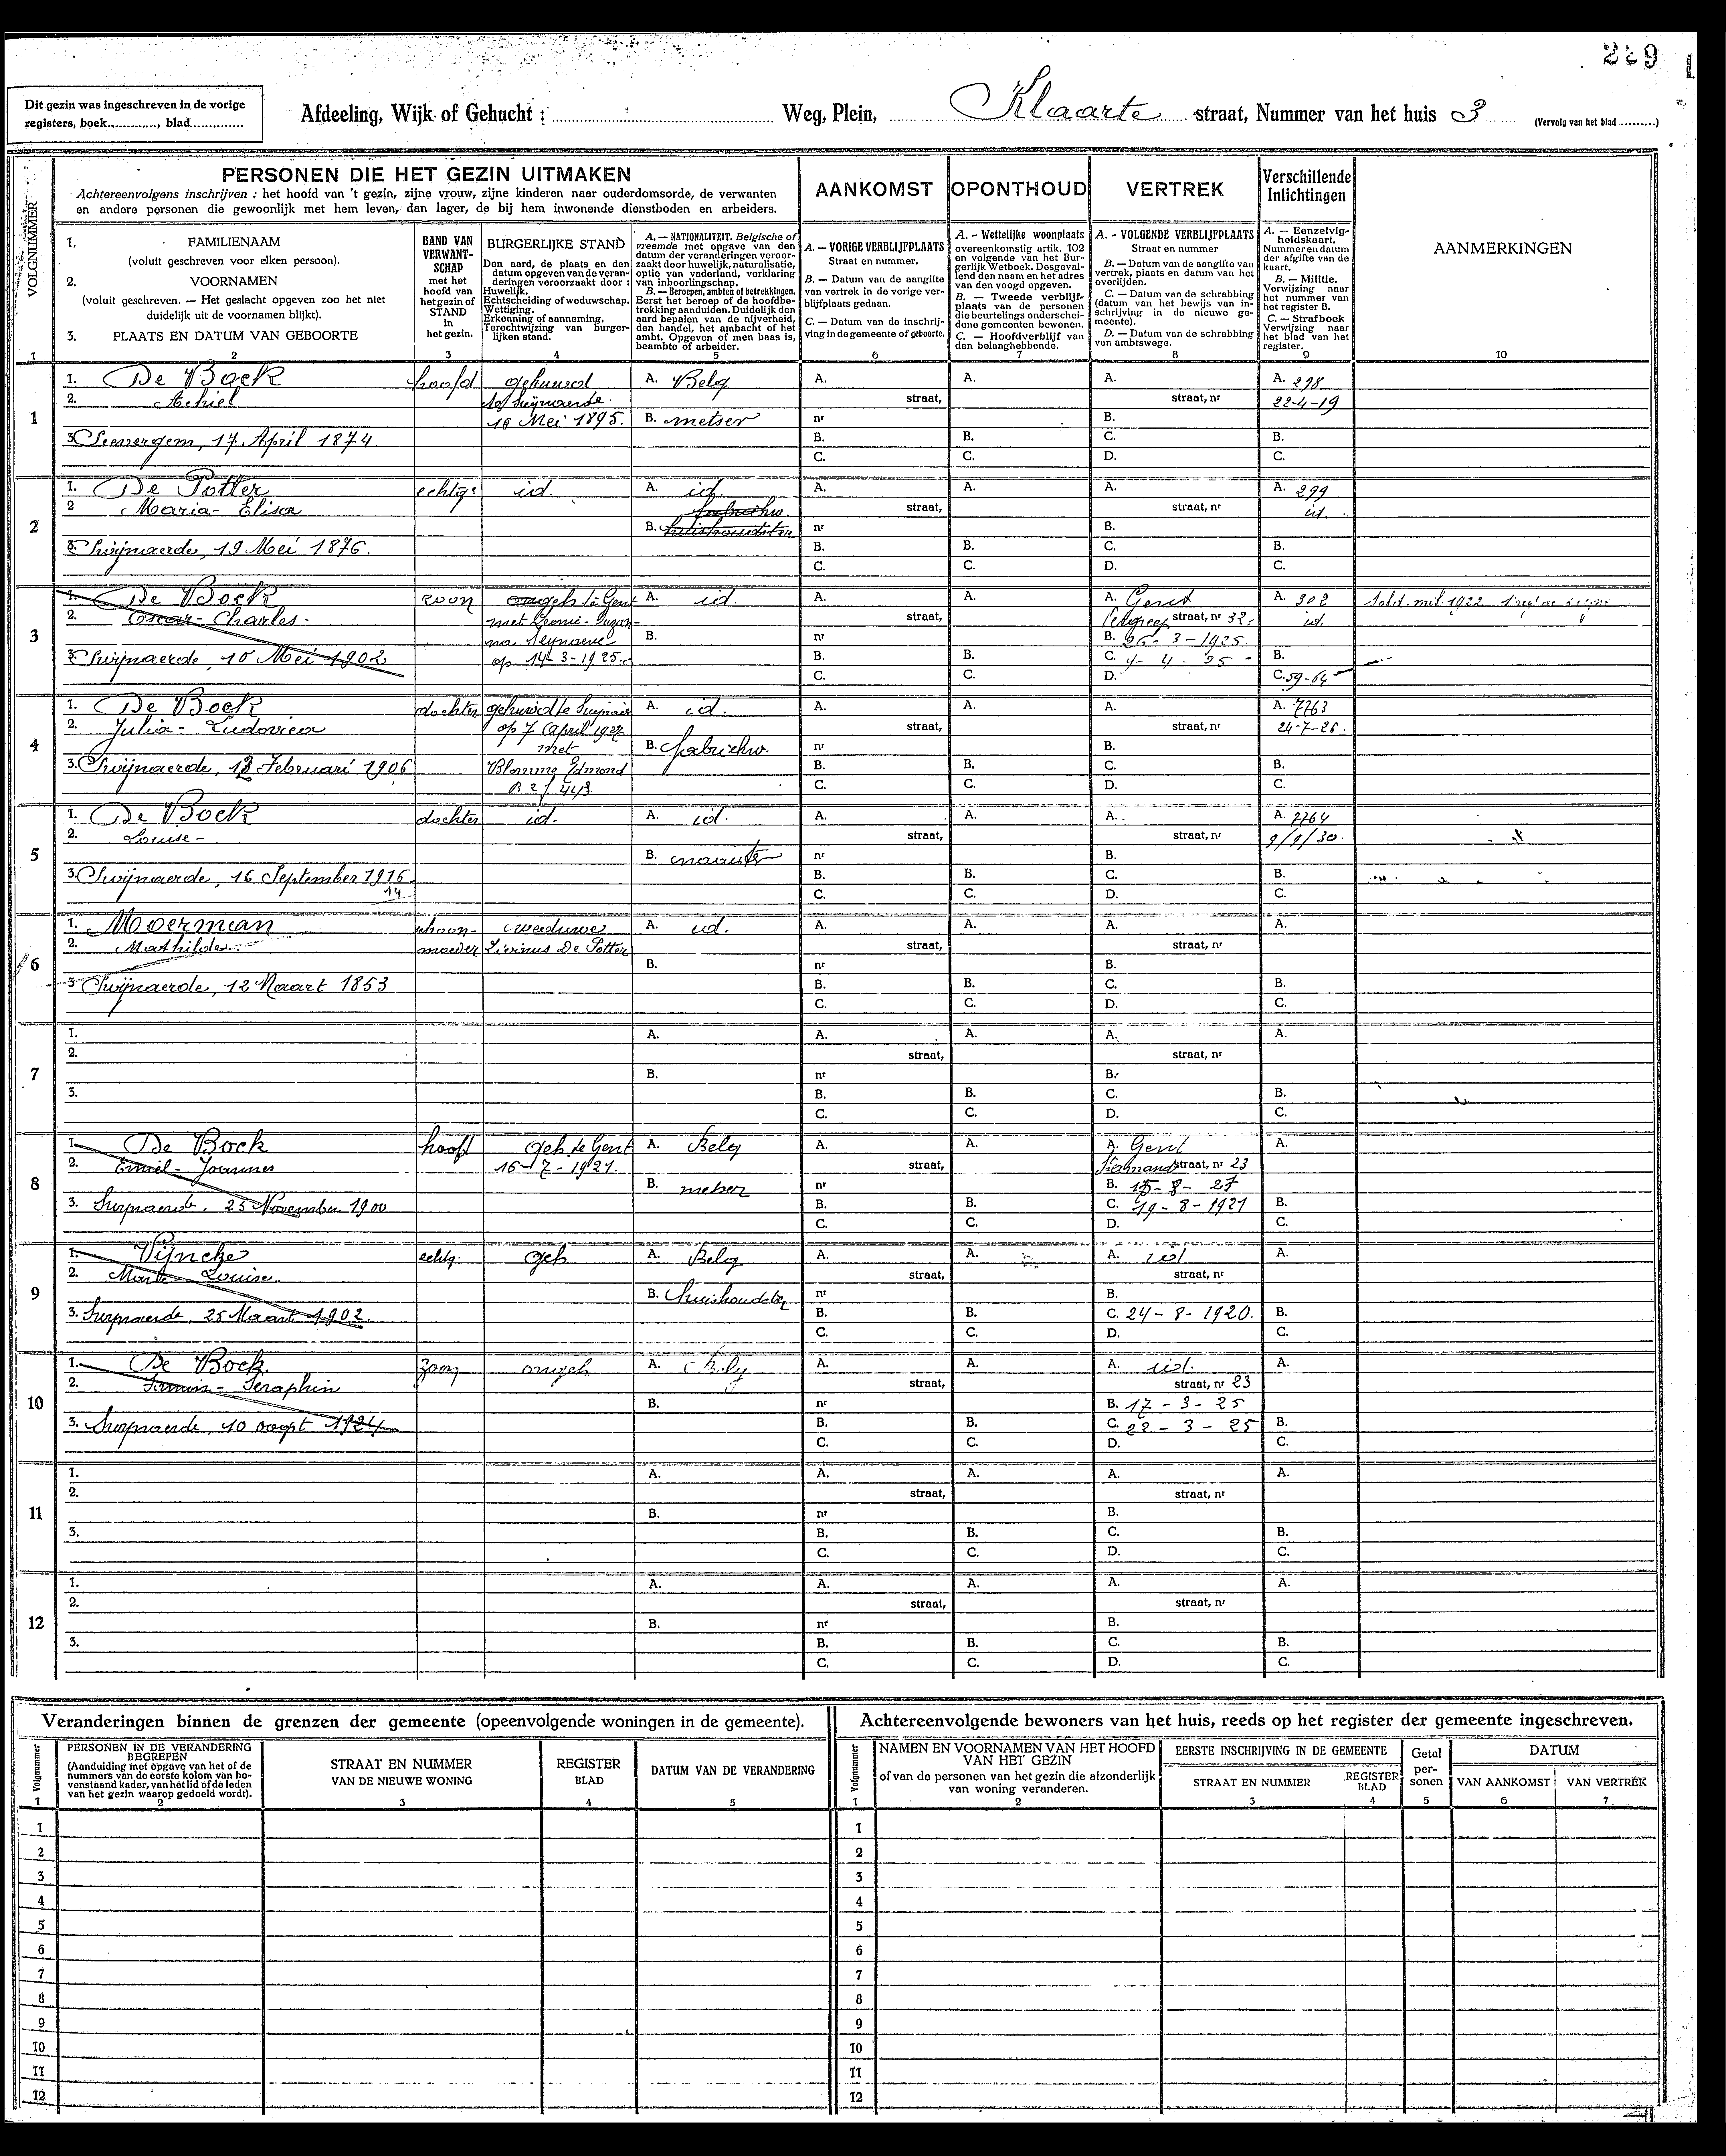 229
Dit gezin was ingeschreven in de vorige
registers, boek............, blad.............
Afdeeling, Wijk of Gehucht : Weg, Plein, Klaarte straat, Nummer van het huis 3 (Vervolg van het blad .........)
PERSONEN DIE HET GEZIN UITMAKEN
Achtereenvolgens inschrijven : het hoofd van 't gezin, zijne vrouw, zijne kinderen naar ouderdomsorde, de verwanten
en andere personen die gewoonlijk met hem leven, dan lager, de bij hem inwonende dienstboden en arbeiders.
AANKOMST
OPONTHOUD
VERTREK
Verschillende
Inlichtingen
AANMERKINGEN
VOLGNUMMER
1. FAMILIENAAM
(voluit geschreven voor elken persoon).
2. VOORNAMEN
(voluit geschreven. — Het geslacht opgeven zoo het niet
duidelijk uit de voornamen blijkt).
3. PLAATS EN DATUM VAN GEBOORTE
BAND VAN
VERWANT-
SCHAP
met het
hoofd van
het gezin of
STAND
in
het gezin.
BURGERLIJKE STAND
Den aard, de plaats en den
datum opgeven van de veran-
deringen veroorzaakt door :
Huwelijk.
Echtscheiding of weduwschap.
Wettiging.
Erkenning of aanneming.
Terechtwijzing van burger-
lijken stand.
A. — NATIONALITEIT. Belgische of
vreemde met opgave van den
datum der veranderingen veroor-
zaakt door huwelijk, naturalisatie,
optie van vaderland, verklaring
van inboorlingschap.
B. — Beroepen, ambten of betrekkingen.
Eerst het beroep of de hoofdbe-
trekking aanduiden. Duidelijk den
aard bepalen van de nijverheid,
den handel, het ambacht of het
ambt. Opgeven of men baas is,
beambte of arbeider.
A. — VORIGE VERBLIJFPLAATS
Straat en nummer.
B. — Datum van de aangifte
van vertrek in de vorige ver-
blijfplaats gedaan.
C. — Datum van de inschrij-
ving in de gemeente of geboorte.
A. - Wettelijke woonplaats
overeenkomstig artik. 102
en volgende van het Bur-
gerlijk Wetboek. Desgeval-
lend den naam en het adres
van den voogd opgeven.
B. — Tweede verblijf-
plaats van de personen
die beurtelings onderschei-
dene gemeenten bewonen.
C. — Hoofdverblijf van
den belanghebbende.
A. - VOLGENDE VERBLIJFPLAATS
Straat en nummer
B. — Datum van de aangifte van
vertrek, plaats en datum van het
overlijden.
C. — Datum van de schrabbing
(datum van het bewijs van in-
schrijving in de nieuwe ge-
meente).
D. — Datum van de schrabbing
van ambtswege.
A. — Eenzelvig-
heidskaart.
Nummer en datum
der afgifte van de
kaart.
B. — Militie.
Verwijzing naar
het nummer van
het register B.
C. — Strafboek
Verwijzing naar
het blad van het
register.
1 2 3 4 5 6 7 8 9 10
1. De Bock hoofd gehuwd A. Belg A. A. A. A. 298
2. Achiel straat, straat, nr 22-4-19
1 16 Mei 1895. B. metser nr B.
3. Seevergem, 17 April 1874. B. B. C. B.
C. C. D. C.
1. De Potter echtg. id. A. id. A. A. A. A. 299
2 Maria - Elisa straat, straat, nr id.
2 B. huishoudster nr B.
3. Swijnaerde, 19 Mei 1876. B. B. C. B.
C. C. D. C.
1. De Bock zoon te Gent A. id. A. A. A. Gent A. 302
2. Oscar - Charles. straat, straat, nr 32. id.
3 B. nr B. 26-3-1925.
3. Swijnaerde, 10 Mei 1902 op 14-3-1925. B. B. C. 4-4-25 B.
C. C. D. C. 59-64
1. De Bock dochter A. id. A. A. A. A. 7763
2. Julia - Ludovica op 7 April 1927 straat, straat, nr 24-7-26.
4 met B. fabriekw. nr B.
3. Swijnaerde, 12 Februari 1906 Blomme Edmond B. B. C. B.
C. C. D. C.
1. De Bock dochter id. A. id. A. A. A. A. 7764
2. Louise - straat, straat, nr 9/9/30.
5 B. naaister nr B.
3. Swijnaerde, 16 September 1916 B. B. C. B.
14 C. C. D. C.
1. Moerman schoon- weduwe A. id. A. A. A. A.
2. Mathilde moeder Livinus De Potter straat, straat, nr
6 B. nr B.
3 Swijnaerde, 12 Maart 1853 B. B. C. B.
C. C. D. C.
1. A. A. A. A. A.
2. straat, straat, nr
7 B. nr B.
3. B. B. C. B.
C. C. D. C.
1. De Bock hoofd geh. te Gent A. Belg A. A. A. Gent A.
2. Emiel - Joannes 16-7-1921. straat, straat, nr 23
8 B. metser nr B. 15-8-21
3. Swijnaerde, 25 November 1900 B. B. C. 19-8-1921 B.
C. C. D. C.
1. Vijncke echtg. geh A. Belg A. A. A. id A.
2. Marie Louise straat, straat, nr
9 B. huishoudster nr B.
3. Swijnaerde, 25 Maart 1902. B. B. C. 24-8-1920. B.
C. C. D. C.
1. De Bock zoon ongeh A. Belg A. A. A. id. A.
2. Firmin - Seraphin straat, straat, nr 23
10 B. nr B. 17-3-25
3. Swijnaerde, 10 oogst 1924 B. B. C. 22-3-25 B.
C. C. D. C.
1. A. A. A. A. A.
2. straat, straat, nr
11 B. nr B.
3. B. B. C. B.
C. C. D. C.
1. A. A. A. A. A.
2. straat, straat, nr
12 B. nr B.
3. B. B. C. B.
C. C. D. C.
Veranderingen binnen de grenzen der gemeente (opeenvolgende woningen in de gemeente).
Volgnummer
PERSONEN IN DE VERANDERING
BEGREPEN
(Aanduiding met opgave van het of de
nummers van de eerste kolom van bo-
venstaand kader, van het lid of de leden
van het gezin waarop gedoeld wordt).
STRAAT EN NUMMER
VAN DE NIEUWE WONING
REGISTER
BLAD
DATUM VAN DE VERANDERING
1 2 3 4 5
1
2
3
4
5
6
7
8
9
10
11
12
Achtereenvolgende bewoners van het huis, reeds op het register der gemeente ingeschreven.
Volgnummer
NAMEN EN VOORNAMEN VAN HET HOOFD
VAN HET GEZIN
of van de personen van het gezin die afzonderlijk
van woning veranderen.
EERSTE INSCHRIJVING IN DE GEMEENTE
STRAAT EN NUMMER
REGISTER
BLAD
Getal
per-
sonen
DATUM
VAN AANKOMST
VAN VERTREK
1 2 3 4 5 6 7
1
2
3
4
5
6
7
8
9
10
11
12